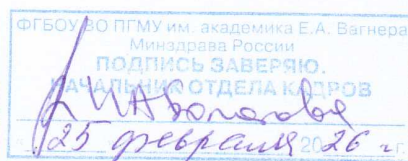 ФГБОУ ВО ПГМУ им. академика Е.А. Вагнера
Минздрава России
ПОДПИСЬ ЗАВЕРЯЮ.
НАЧАЛЬНИК ОТДЕЛА КАДРОВ
25 февраля 2026 г.